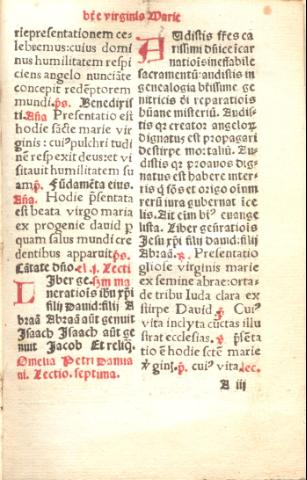 bt̄e virginis Marie
riepresentationem ce
lebremus: cuius domi
nus humilitatem respi
ciens angelo nunciāte
concepit redēptorem
mundi. ps. Benedixis
ti. Aña Presentatio est
hodie sācte marie vir
ginis: cui⁹ pulchri tudi
nē resp exit deus: et vi
sitauit humilitatem su
am. p̄. Fūdamēta eius.
Aña. Hodie p̄sentata
est beata virgo maria
ex progenie dauid p
quam salus mundi cre
dentibus apparuit. ps.
Cātate dño. el. j. Lecti
LIber ge. sꝫm ma
neratiōis ihu xp̄i
filij Dauid: filij A
braā Abraā aūt genuit
Isaach Isaach aūt ge
nuit Jacob Et reliq̄.
Omelia Petri Damia
ni. Lectio. septima.
AUdistis ffes ca
rissimi dn̄ice īcar
natiōis ineffabile
sacramentū: audistis in
genealogia bt̄issime ge
nitricis di reparatiōis
hūane misteriū. Audis
tis qꝫ creator angeloꝝ
Dignatus est propagari
de stirpe mortaliū. Au
distis qꝫ proauos dig
natus est habere inter
ris q̄ fōs et origo oīum
rerū iura gubernat ī ce
lis. Ait eīm bt̄⁹ euange
lista. Liber gen̄ratiōis
Jesu xp̄i filij dauid: filij
Abraā. ꝶ. Presentatio
gliose virginis marie
ex semine abrae: orta
de tribu Iuda clara ex
stirpe Dauid. p̄. Cui⁹
vita inclyta cūctas illu
strat ecclesias. ꝟ. p̄sēta
tio ē hodie sctē marie
ꝟginꝭ. p̄. cui⁹ vita. lec.
A iij